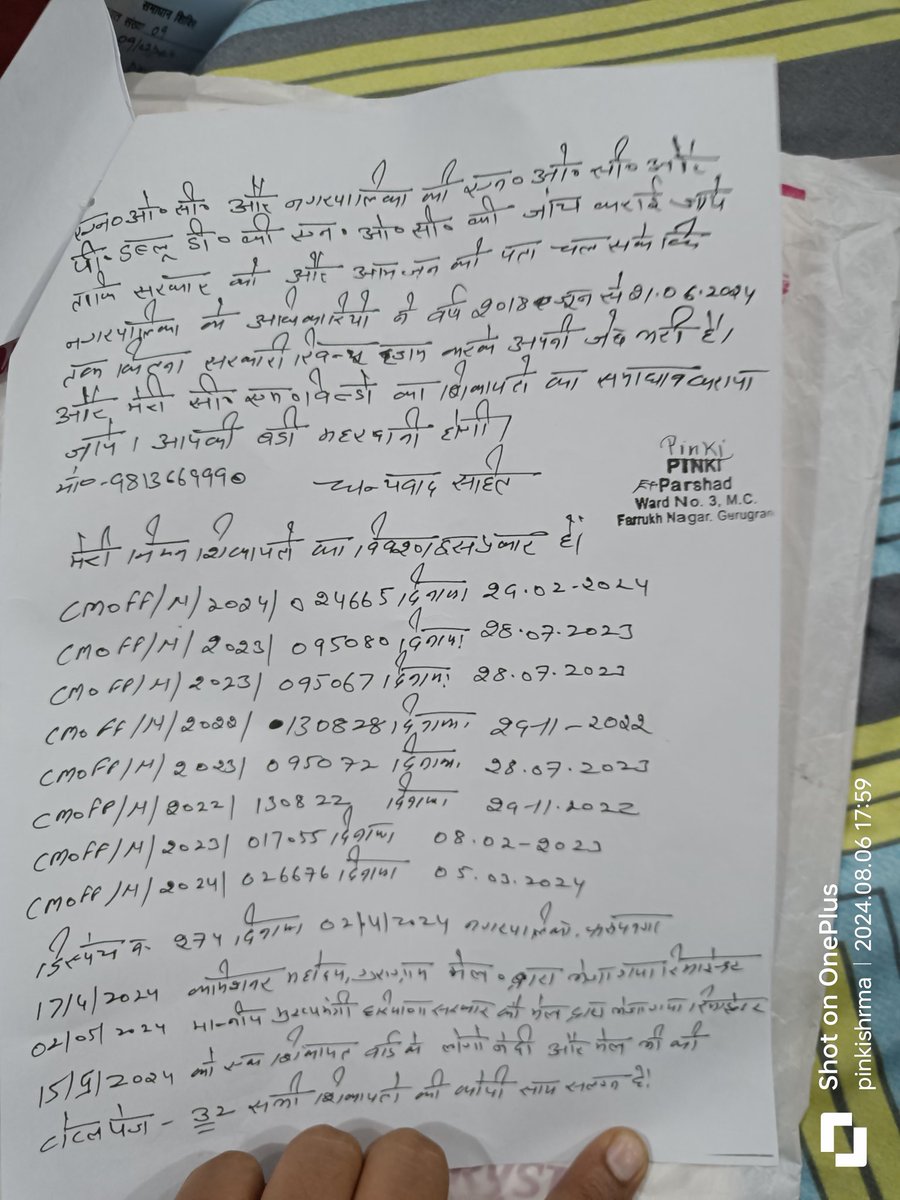 समाधान शिविर
संख्या 09
एन०ओ०सी० और नगरपालिका की एन०ओ०सी० और
पी.डब्लू डी० की एन.ओ०सी० की जांच कराई जाये
ताकि सरकार को और आमजन को पता चल सके कि
नगरपालिका के अधिकारियों ने वर्ष 2018 जून से 21.06.2024
तक कितना सरकारी करके अपनी जेब भरी है।
और मेरी सी० एम० विन्डो का शिकायतो का समाधान कराया
जाये। आपकी बडी महरबानी होगी।
मो०-9813669990 धन्यवाद सहित
Pinki
PINKI
Ex Parshad
Ward No. 3, M.C.
Farrukh Nagar. Gurugram
मेरी निम्न शिकायतो का विवरण इस प्रकार है।
CMOFF/N/2024/024665 दिनांक 29.02-2024
CMOFF/N/2023/095080 दिनांक 28.07.2023
CMOFF/N/2023/095067 दिनांक 28.07.2023
CMOFF/N/2022/130828 दिनांक 29-11-2022
CMOFF/N/2023/095072 दिनांक 28.07.2023
CMOFF/N/2022/130822 दिनांक 29-11.2022
CMOFF/N/2023/017055 दिनांक 08.02-2023
CMOFF/N/2024/026676 दिनांक 05.03.2024
डिस्पैच न. 274 दिनांक 02/4/2024 नगरपालिका.
17/4/2024 कमिशनर महोदय, गुरुग्राम मेल० द्वारा भेजा गया रिमाइन्डर
02/05/2024 माननीय मुख्यमंत्री हरियाणा सरकार को मेल द्वारा भेजा गया रिमाइन्डर
15/5/2024 को एक शिकायत वार्ड के लोगो ने दी और मेल भी की
टोटल पेज - 32 सभी शिकायतो की कोपी साथ सलग्न है।
Shot on OnePlus
pinkishrma | 2024.08.06 17:59